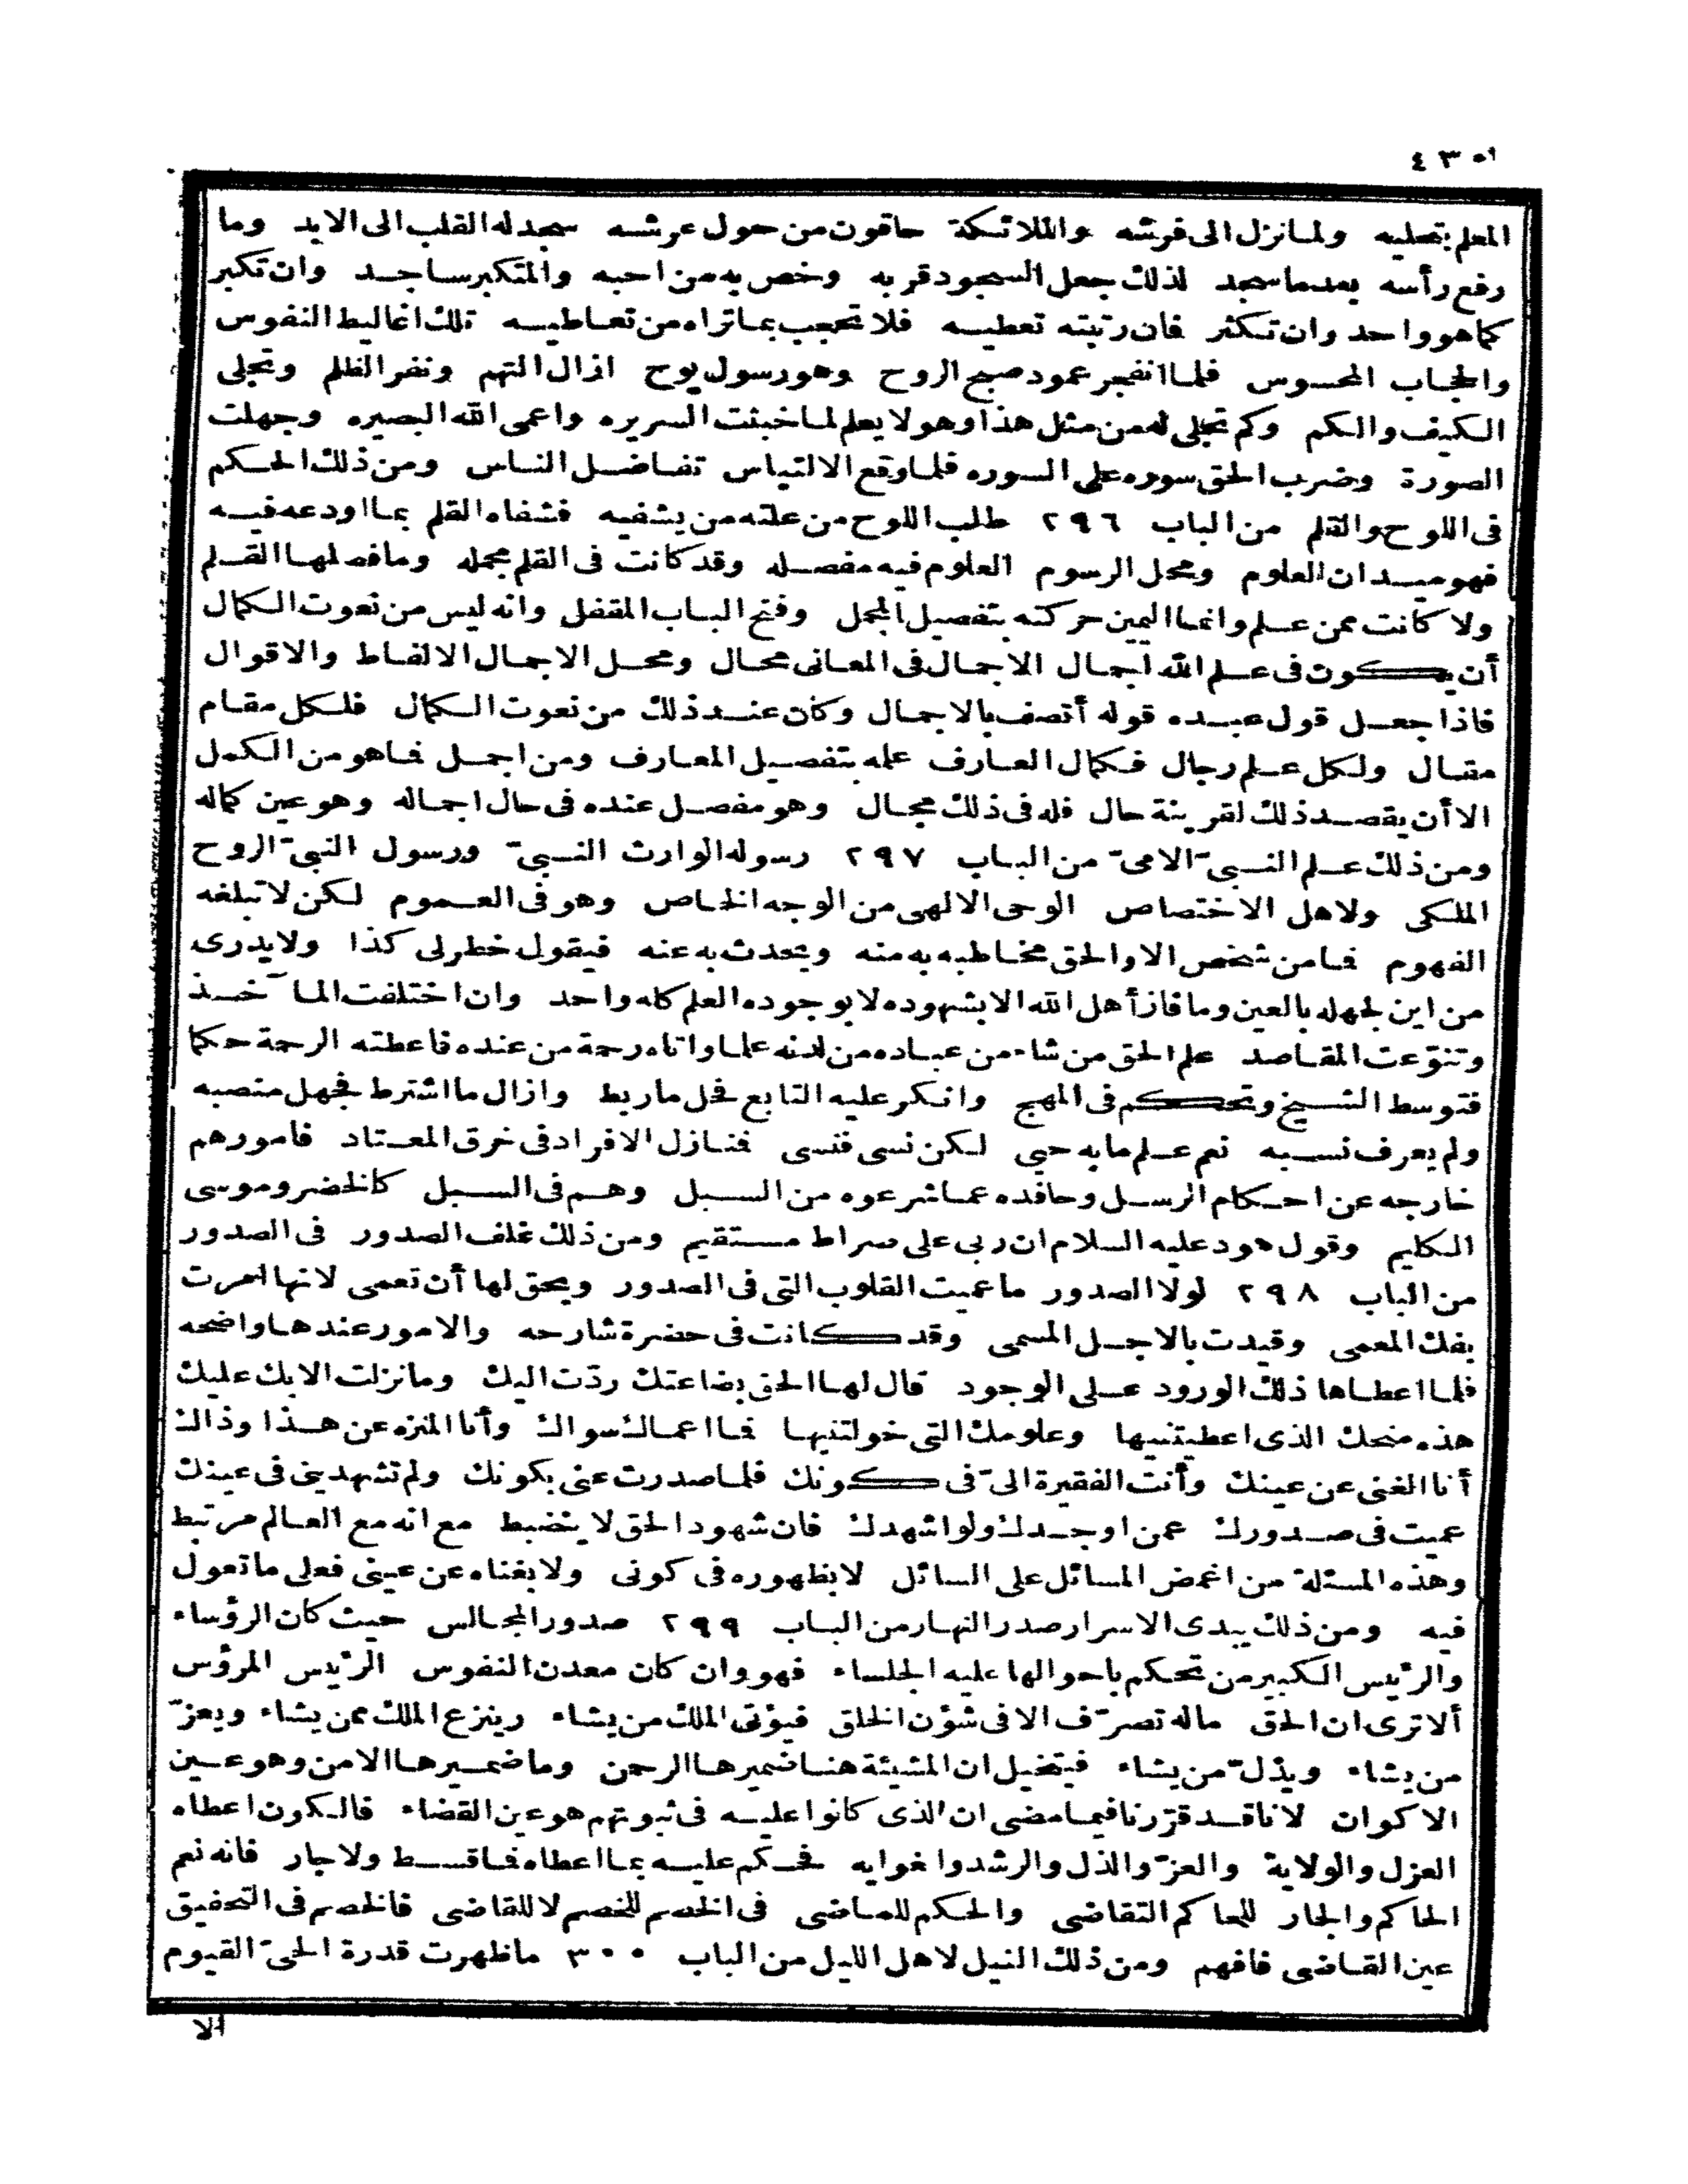 ٤٣٥
المعلم بتحليه ولما نزل الى فرشه والملائكة حافون من حول عرشه سجد له القلب الى الابد وما
رفع رأسه بعد ما سجد لذلك جعل السجود قربه وخص به من احبه والمتكبر ساجد وان تكبر
كما هو واحد وان تكثر فان رتبته تعطيه فلا تعجب بما تراه من تعاطيه تلك اغاليط النفوس
والحجاب المحسوس فلما انفجر عمود صبح الروح وهو رسول يوح ازال التهم ونفر الظلم وتجلى
الكيف والكم وكم تجلى له من مثل هذا وهو لا يعلم لما خبثت السريره واعمى الله البصيره وجهلت
الصورة وضرب الحق سوره على السوره فلما وقع الالتباس تفاضل الناس ومن ذلك الحكم
فى اللوح والقلم من الباب ٢٩٦ طلب اللوح من علته من يشفيه فشفاه القلم بما اودعه فيه
فهو ميدان العلوم ومحل الرسوم العلوم فيه مفصله وقد كانت فى القلم مجمله وما فصلها القلم
ولا كانت ممن علم وانما اليمين حركته بتفصيل المجمل وفتح الباب المقفل وانه ليس من نعوت الكمال
أن يكون فى علم الله اجمال الاجمال فى المعانى محال ومحل الاجمال الالفاظ والاقوال
فاذا جعل قول عبده قوله أتصف بالاجمال وكان عند ذلك من نعوت الكمال فلكل مقام
مقال ولكل علم رجال فكمال العارف علمه بتفصيل المعارف ومن اجمل فما هو من الكمل
الا أن يقصد ذلك لقرينة حال فله فى ذلك مجال وهو مفصل عنده فى حال اجماله وهو عين كماله
ومن ذلك علم النبىّ الامىّ من الباب ٢٩٧ رسوله الوارث النبىّ ورسول النبىّ الروح
الملكى ولاهل الاختصاص الوحى الالهى من الوجه الخاص وهو فى العموم لكن لا تبلغه
الفهوم فما من شخص الا والحق مخاطبه به منه ويحدث به عنه فيقول خطر لى كذا ولا يدرى
من اين لجهله بالعين وما فاز أهل الله الا بشهوده لا بوجوده العلم كله واحد وان اختلفت المآخذ
وتنوّعت المقاصد علم الحق من شاء من عباده من لدنه علما واتاه رحمة من عنده فاعطته الرحمة حكما
فتوسط الشبخ وتحكم فى المهج وانكر عليه التابع فحل ما ربط وازال ما اشترط فجهل منصبه
ولم يعرف نسبه نعم علم ما به حيى لكن نسى فنسى فنازل الافراد فى خرق المعتاد فامورهم
خارجه عن احكام الرسل وحافده عما شرعوه من السبل وهم فى السبل كالخضر وموسى
الكليم وقول هود عليه السلام ان ربى على صراط مستقيم ومن ذلك غلف الصدور فى الصدور
من الباب ٢٩٨ لولا الصدور ما عميت القلوب التى فى الصدور ويحق لها أن تعمى لانها امرت
بفك المعمى وقيدت بالاجل المسمى وقد كانت فى حضرة شارحه والامور عندها واضحه
فلما اعطاها ذلك الورود على الوجود قال لها الحق بضاعتك ردّت اليك وما نزلت الا بك عليك
هذه منحك الذى اعطيتنيها وعلومك التى خولتنيها فما اعماك سواك وأنا المنزه عن هذا وذاك
أنا الغنى عن عينك وأنت الفقيرة الىّ فى كونك فلما صدرت عنى بكونك ولم تشهدينى فى عينك
عميت فى صدورك عمن اوجدك ولو اشهدك فان شهود الحق لا ينضبط مع انه مع العالم مرتبط
وهذه المسئلة من اغمض المسائل على السائل لا بظهوره فى كونى ولا بغناه عن عينى فعلى ما تعول
فيه ومن ذلك يبدى الاسرار صدر النهار من الباب ٢٩٩ صدور المجالس حيث كان الرؤساء
والرئيس الكبير من تحكم باحوالها عليه الجلساء فهو وان كان معدن النفوس الرئيس المرؤس
ألا ترى ان الحق ماله تصرّف الا فى شؤن الخلق فيؤتى الملك من يشاء وينزع الملك ممن يشاء ويعزّ
من يشاء ويذلّ من يشاء فيتخيل ان المشيئة هنا ضميرها الرحمن وما ضميرها الا من وهو عين
الاكوان لانا قد قرّرنا فيما مضى ان الذى كانوا عليه فى ثبوتهم هو عين القضاء فالكون اعطاه
العزل والولاية والعزّ والذل والرشد والغوايه فحكم عليه بما اعطاه فما قسط ولا جار فانه نعم
الحاكم والجار للحاكم التقاضى والحكم للماضى فى الخصم للخصم لا للقاضى فالخصم فى التحقيق
عين القاضى فافهم ومن ذلك النيل لاهل الليل من الباب ٣٠٠ ما ظهرت قدرة الحىّ القيوم
الا